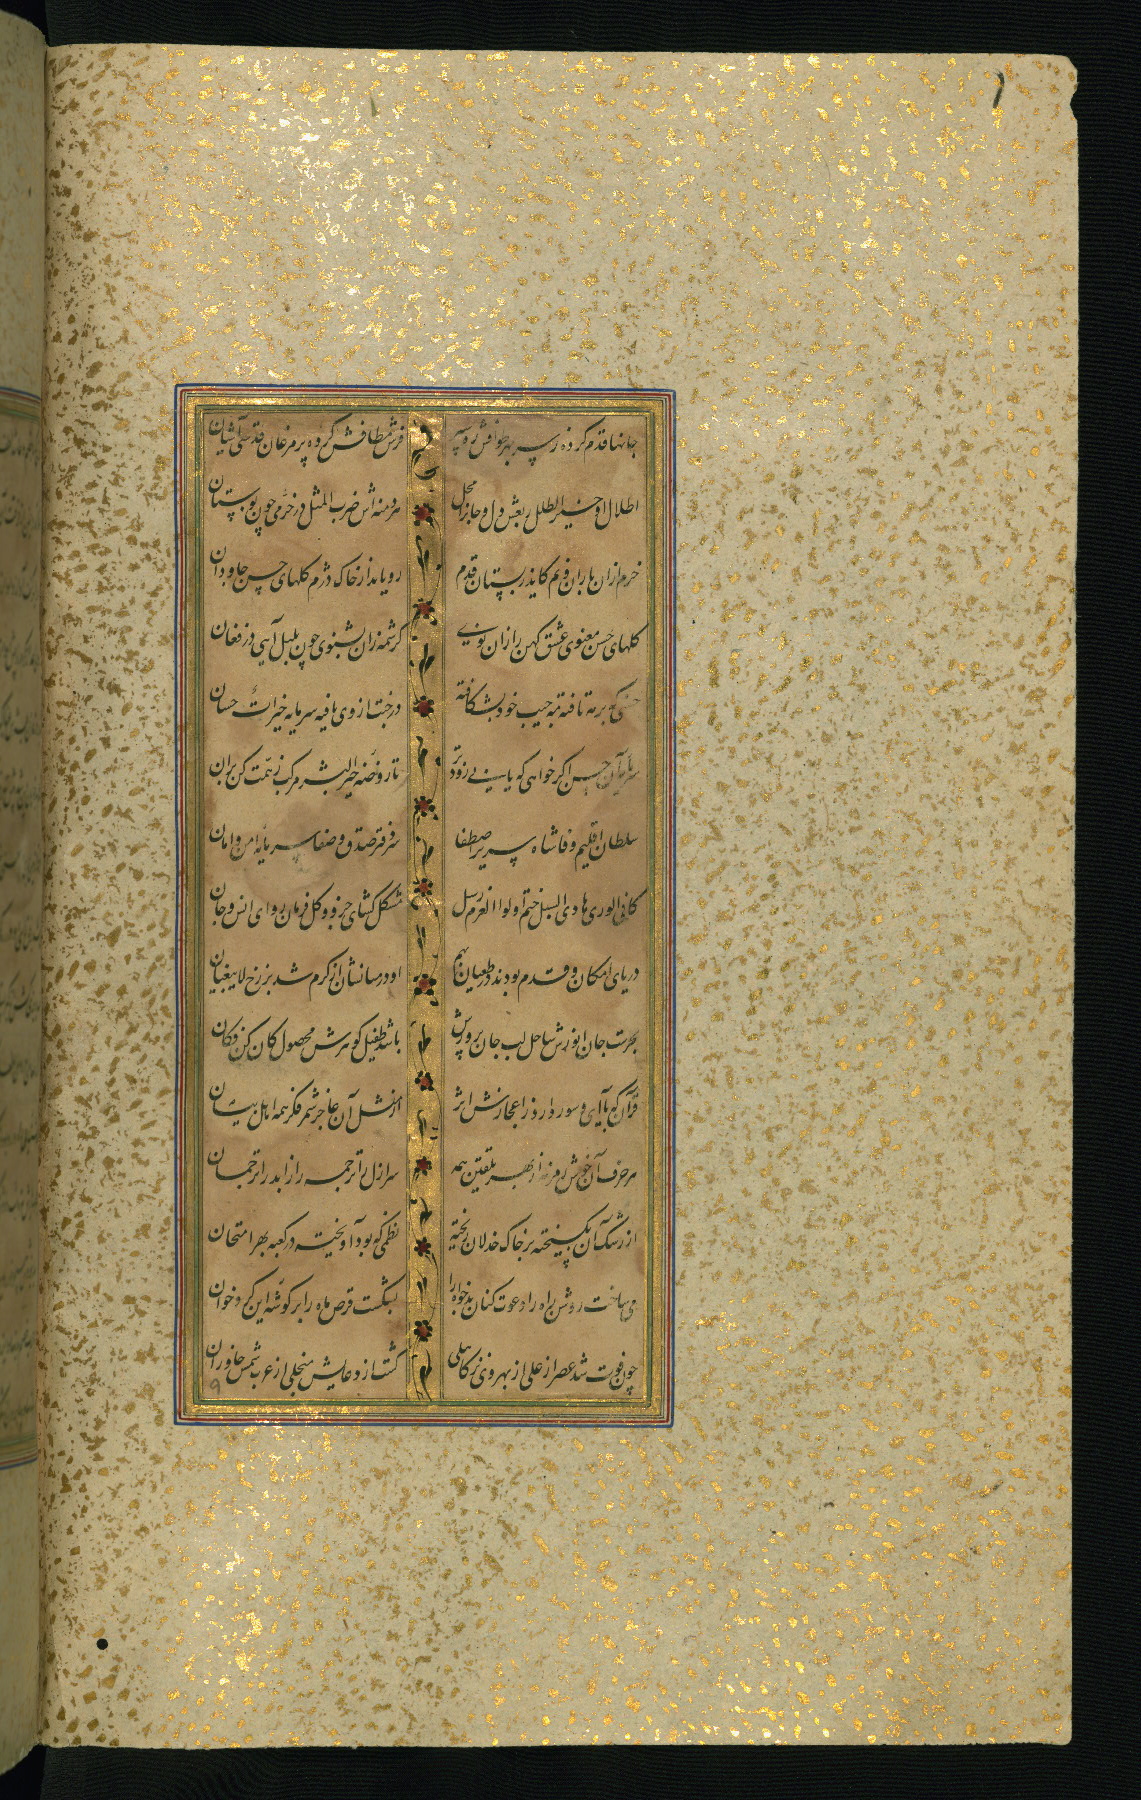 جانها قدم کرده ز سر بهر طوافش رو سپر فرش مطافش کرده پر مرغان قدسی آشیان
اطلال او خیر الطلل ربعش دل و جان را محل هر دمنه‌اش ضرب المثل در خرمی چون بوستان
خرم ازان باران و نم کاید ز بستان قدم رویاند از خاک دژم گلهای حسن جاودان
گلهای حسن معنوی عشق کهن را زان نوی گر شمه زان بشنوی چون بلبل آیی در فغان
حسنی که بر مه تافته مه جیب خود بشکافته درخت از وی یافته سرمایه خیرات حسان
سر تا آن حسن اگر خواهی که یابی زودتر تا روضه خیر البشر مرکب ز همت کن بران
سلطان اقلیم وفا شاه سریر اصطفا سر دفتر صدق و صفا سرمایه امن و امان
کافی الوری هادی السبل ختم اولوا العزم رسل مشکل گشای جزو و کل فرمان روای انس و جان
دریای امکان و قدم بودند در طغیان بهم او در میانشان از کرم شد برزخ لا یبغیان
بحریست جان انورش ساحل لب جان پرورش باشد طفیل گوهرش محصول کان کن فکان
قرآن که با آی و سور دارد ز اعجازش اثر از مثل آن عاجز شمر فکر همه اهل بیان
هر حرف آن خوش زمزمه از بهر تلقین همه سر ازل را ترجمه راز ابد را ترجمان
از رشک آن بگسیخته بر خاک خذلان ریخته نظمی که بود آویخته در کعبه بهر امتحان
می‌ساخت روشن راه را دعوت کنان بدخواه را بشکست قرص ماه را بر گوشه این گرد خوان
چون فوت شد عصر از علی از بهر وی نز کاهلی گشت از دعایش منجلی از غرب شمس خاوران